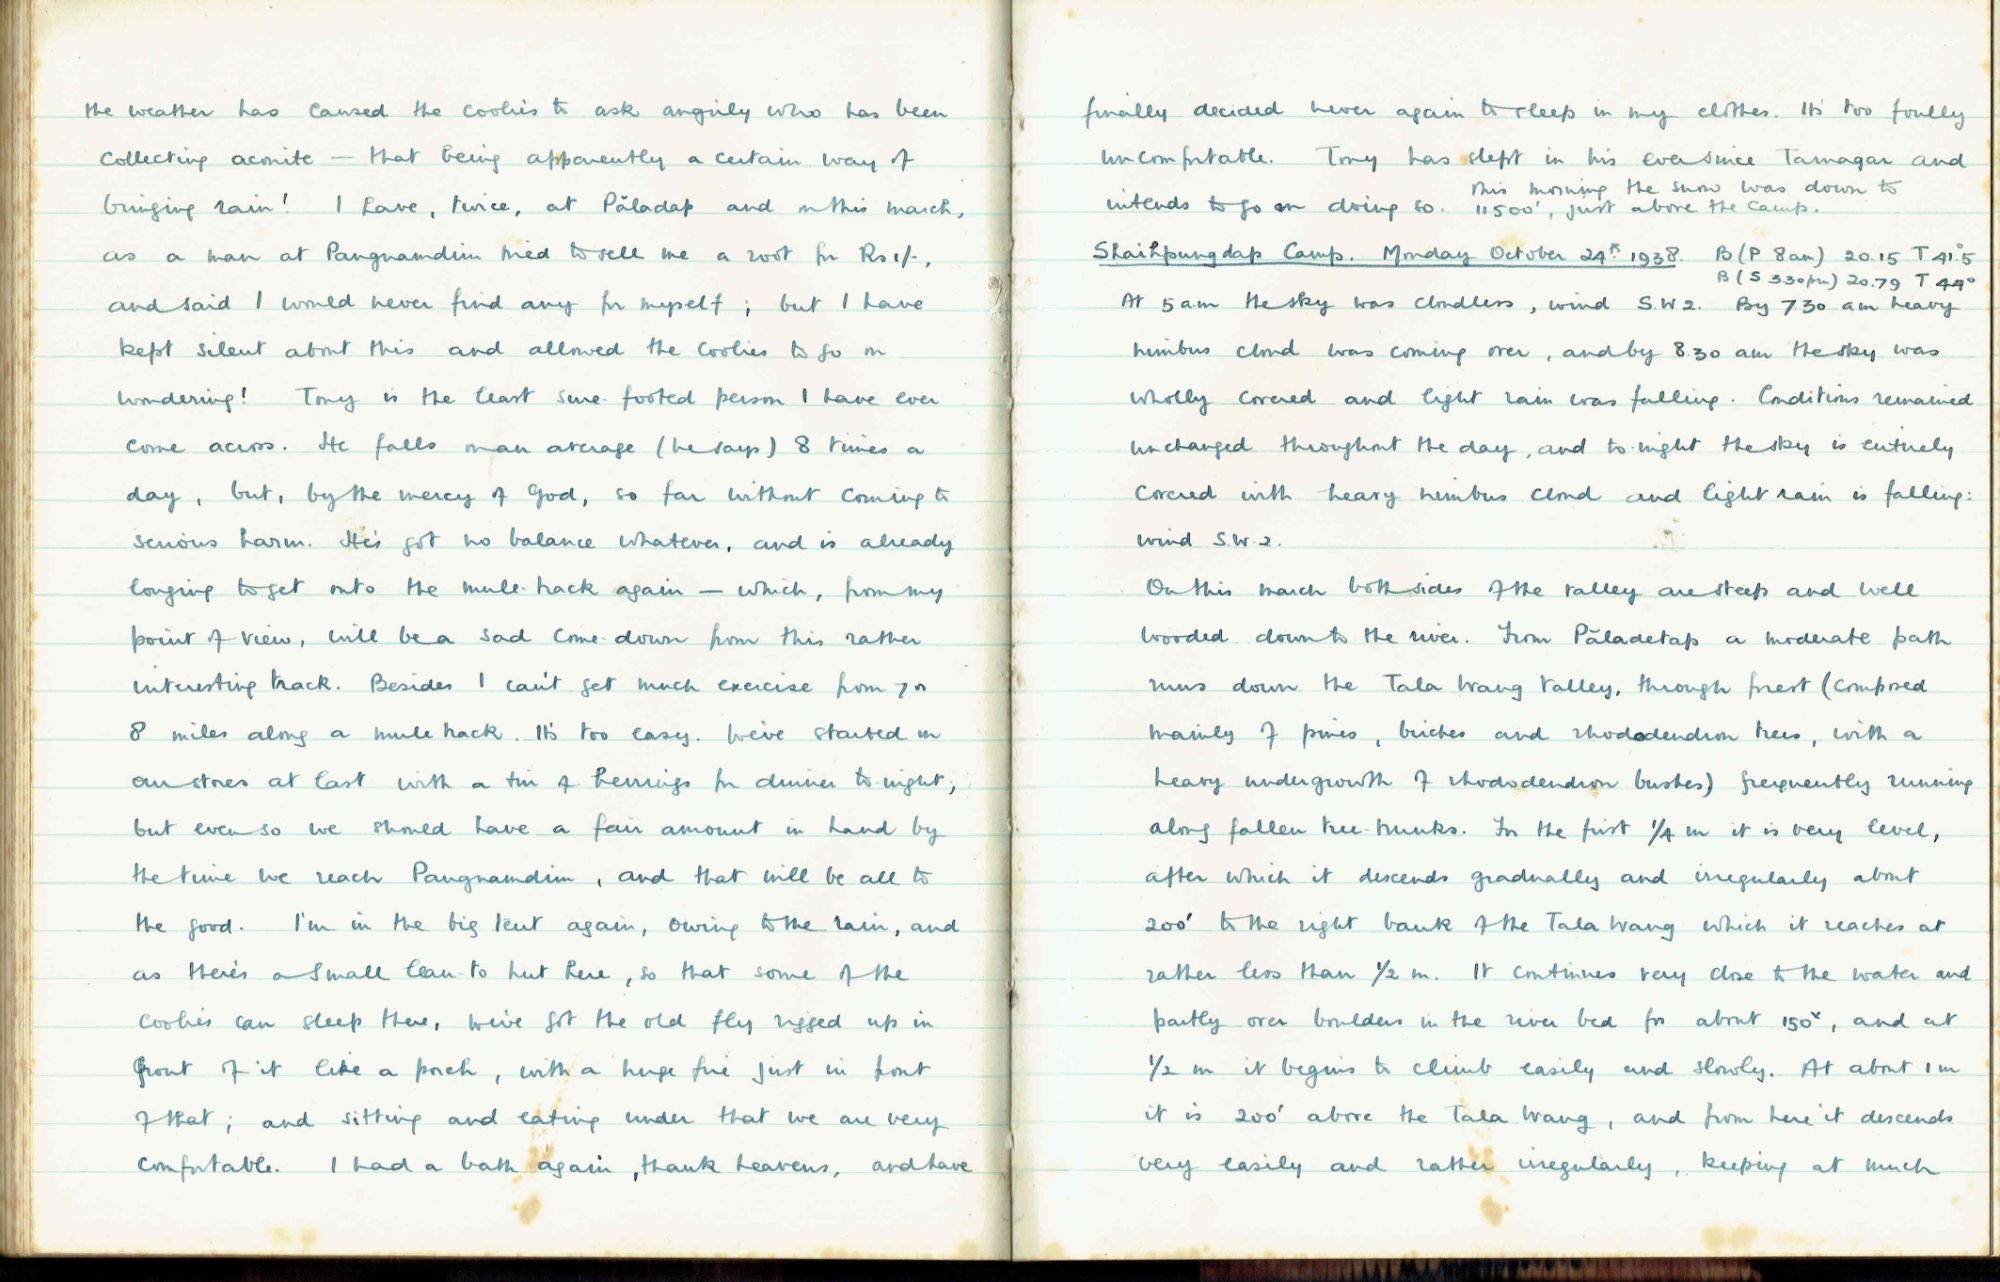 the weather has caused the coolies to ask angrily who has been
collecting aconite — that being apparently a certain way of
bringing rain! I have, twice, at Pāladap and on this march,
as a man at Pangnamdim tried to sell me a root for Rs 1/-,
and said I would never find any for myself; but I have
kept silent about this and allowed the coolies to go on
wondering! Tony is the least sure-footed person I have ever
come across. He falls on an average (he says) 8 times a
day, but, by the mercy of God, so far without coming to
serious harm. He's got no balance whatever, and is already
longing to get onto the mule-track again — which, from my
point of view, will be a sad come-down from this rather
interesting track. Besides I can't get much exercise from 7 or
8 miles along a mule track. It's too easy. We've started on
our stores at last with a tin of herrings for dinner to-night;
but even so we should have a fair amount in hand by
the time we reach Pangnamdim, and that will be all to
the good. I'm in the big tent again, owing to the rain, and
as there's a small lean-to hut here, so that some of the
coolies can sleep there, we've got the old fly rigged up in
front of it like a porch, with a huge fire just in front
of that; and sitting and eating under that we are very
comfortable. I had a bath again, thank heavens, and have
finally decided never again to sleep in my clothes. It's too foully
uncomfortable. Tony has slept in his ever since Tamagar and
intends to go on doing so. This morning the snow was down to
11500', just above the camp.
Shaihpungdap Camp. Monday October 24th 1938. B (P 8am) 20.15 T 41°.5
B (S 330pm) 20.79 T 44°
At 5 am the sky was cloudless, wind S.W 2. By 7 30 am heavy
nimbus cloud was coming over, and by 8.30 am the sky was
wholly covered and light rain was falling. Conditions remained
unchanged throughout the day, and to-night the sky is entirely
covered with heavy nimbus cloud and light rain is falling:
wind S.W. 2.
On this march both sides of the valley are steep and well
wooded down to the river. From Pāladetap a moderate path
runs down the Tala Wang valley, through forest (composed
mainly of pines, birches and rhododendron trees, with a
heavy undergrowth of rhododendron bushes) frequently running
along fallen tree-trunks. For the first 1/4 m it is very level,
after which it descends gradually and irregularly about
200' to the right bank of the Tala Wang which it reaches at
rather less than 1/2 m. It continues very close to the water and
partly over boulders in the river bed for about 150x, and at
1/2 m it begins to climb easily and slowly. At about 1 m
it is 200' above the Tala Wang, and from here it descends
very easily and rather irregularly, keeping at much